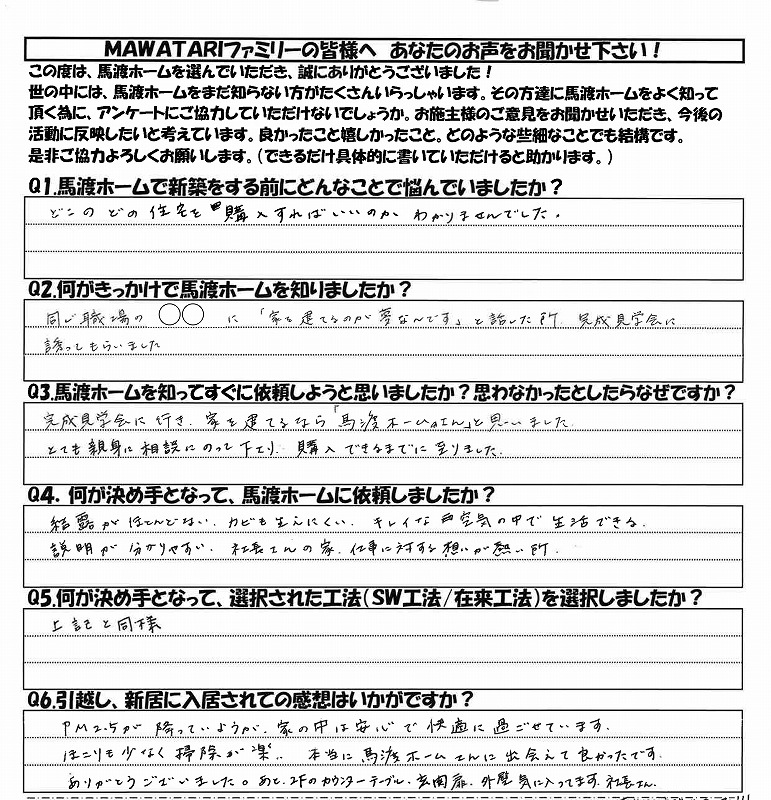 MAWATARIファミリーの皆様へ あなたのお声をお聞かせ下さい！
この度は、馬渡ホームを選んでいただき、誠にありがとうございました！
世の中には、馬渡ホームをまだ知らない方がたくさんいらっしゃいます。その方達に馬渡ホームをよく知って
頂く為に、アンケートにご協力していただけないでしょうか。お施主様のご意見をお聞かせいただき、今後の
活動に反映したいと考えています。良かったこと嬉しかったこと。どのような些細なことでも結構です。
是非ご協力よろしくお願いします。（できるだけ具体的に書いていただけると助かります。）
Q1.馬渡ホームで新築をする前にどんなことで悩んでいましたか？
どこのどの住宅を購入すればいいのか わかりませんでした。
Q2.何がきっかけで馬渡ホームを知りましたか？
同じ職場の 〇〇 に 「家を建てるのが夢なんです」と話した所、完成見学会に
誘ってもらいました
Q3.馬渡ホームを知ってすぐに依頼しようと思いましたか？思わなかったとしたらなぜですか？
完成見学会に行き、家を建てるなら「馬渡ホームさん」と思いました
とても親身に相談にのって下さり、購入できるまでに至りました。
Q4. 何が決め手となって、馬渡ホームに依頼しましたか？
結露がほとんどない、カビも生えにくい、キレイな空気の中で生活できる、
説明が分かりやすい、社長さんの家、仕事に対する想いが熱い所
Q5.何が決め手となって、選択された工法（SW工法/在来工法）を選択しましたか？
上記と同様
Q6.引越し、新居に入居されての感想はいかがですか？
PM2.5が降っていようが、家の中は安心で快適に過ごせています。
ほこりも少なく掃除が楽。 本当に馬渡ホームさんに出会えて良かったです。
ありがとうございました。あと、2Fのカウンターテーブル、玄関扉、外壁気に入ってます。社長さん